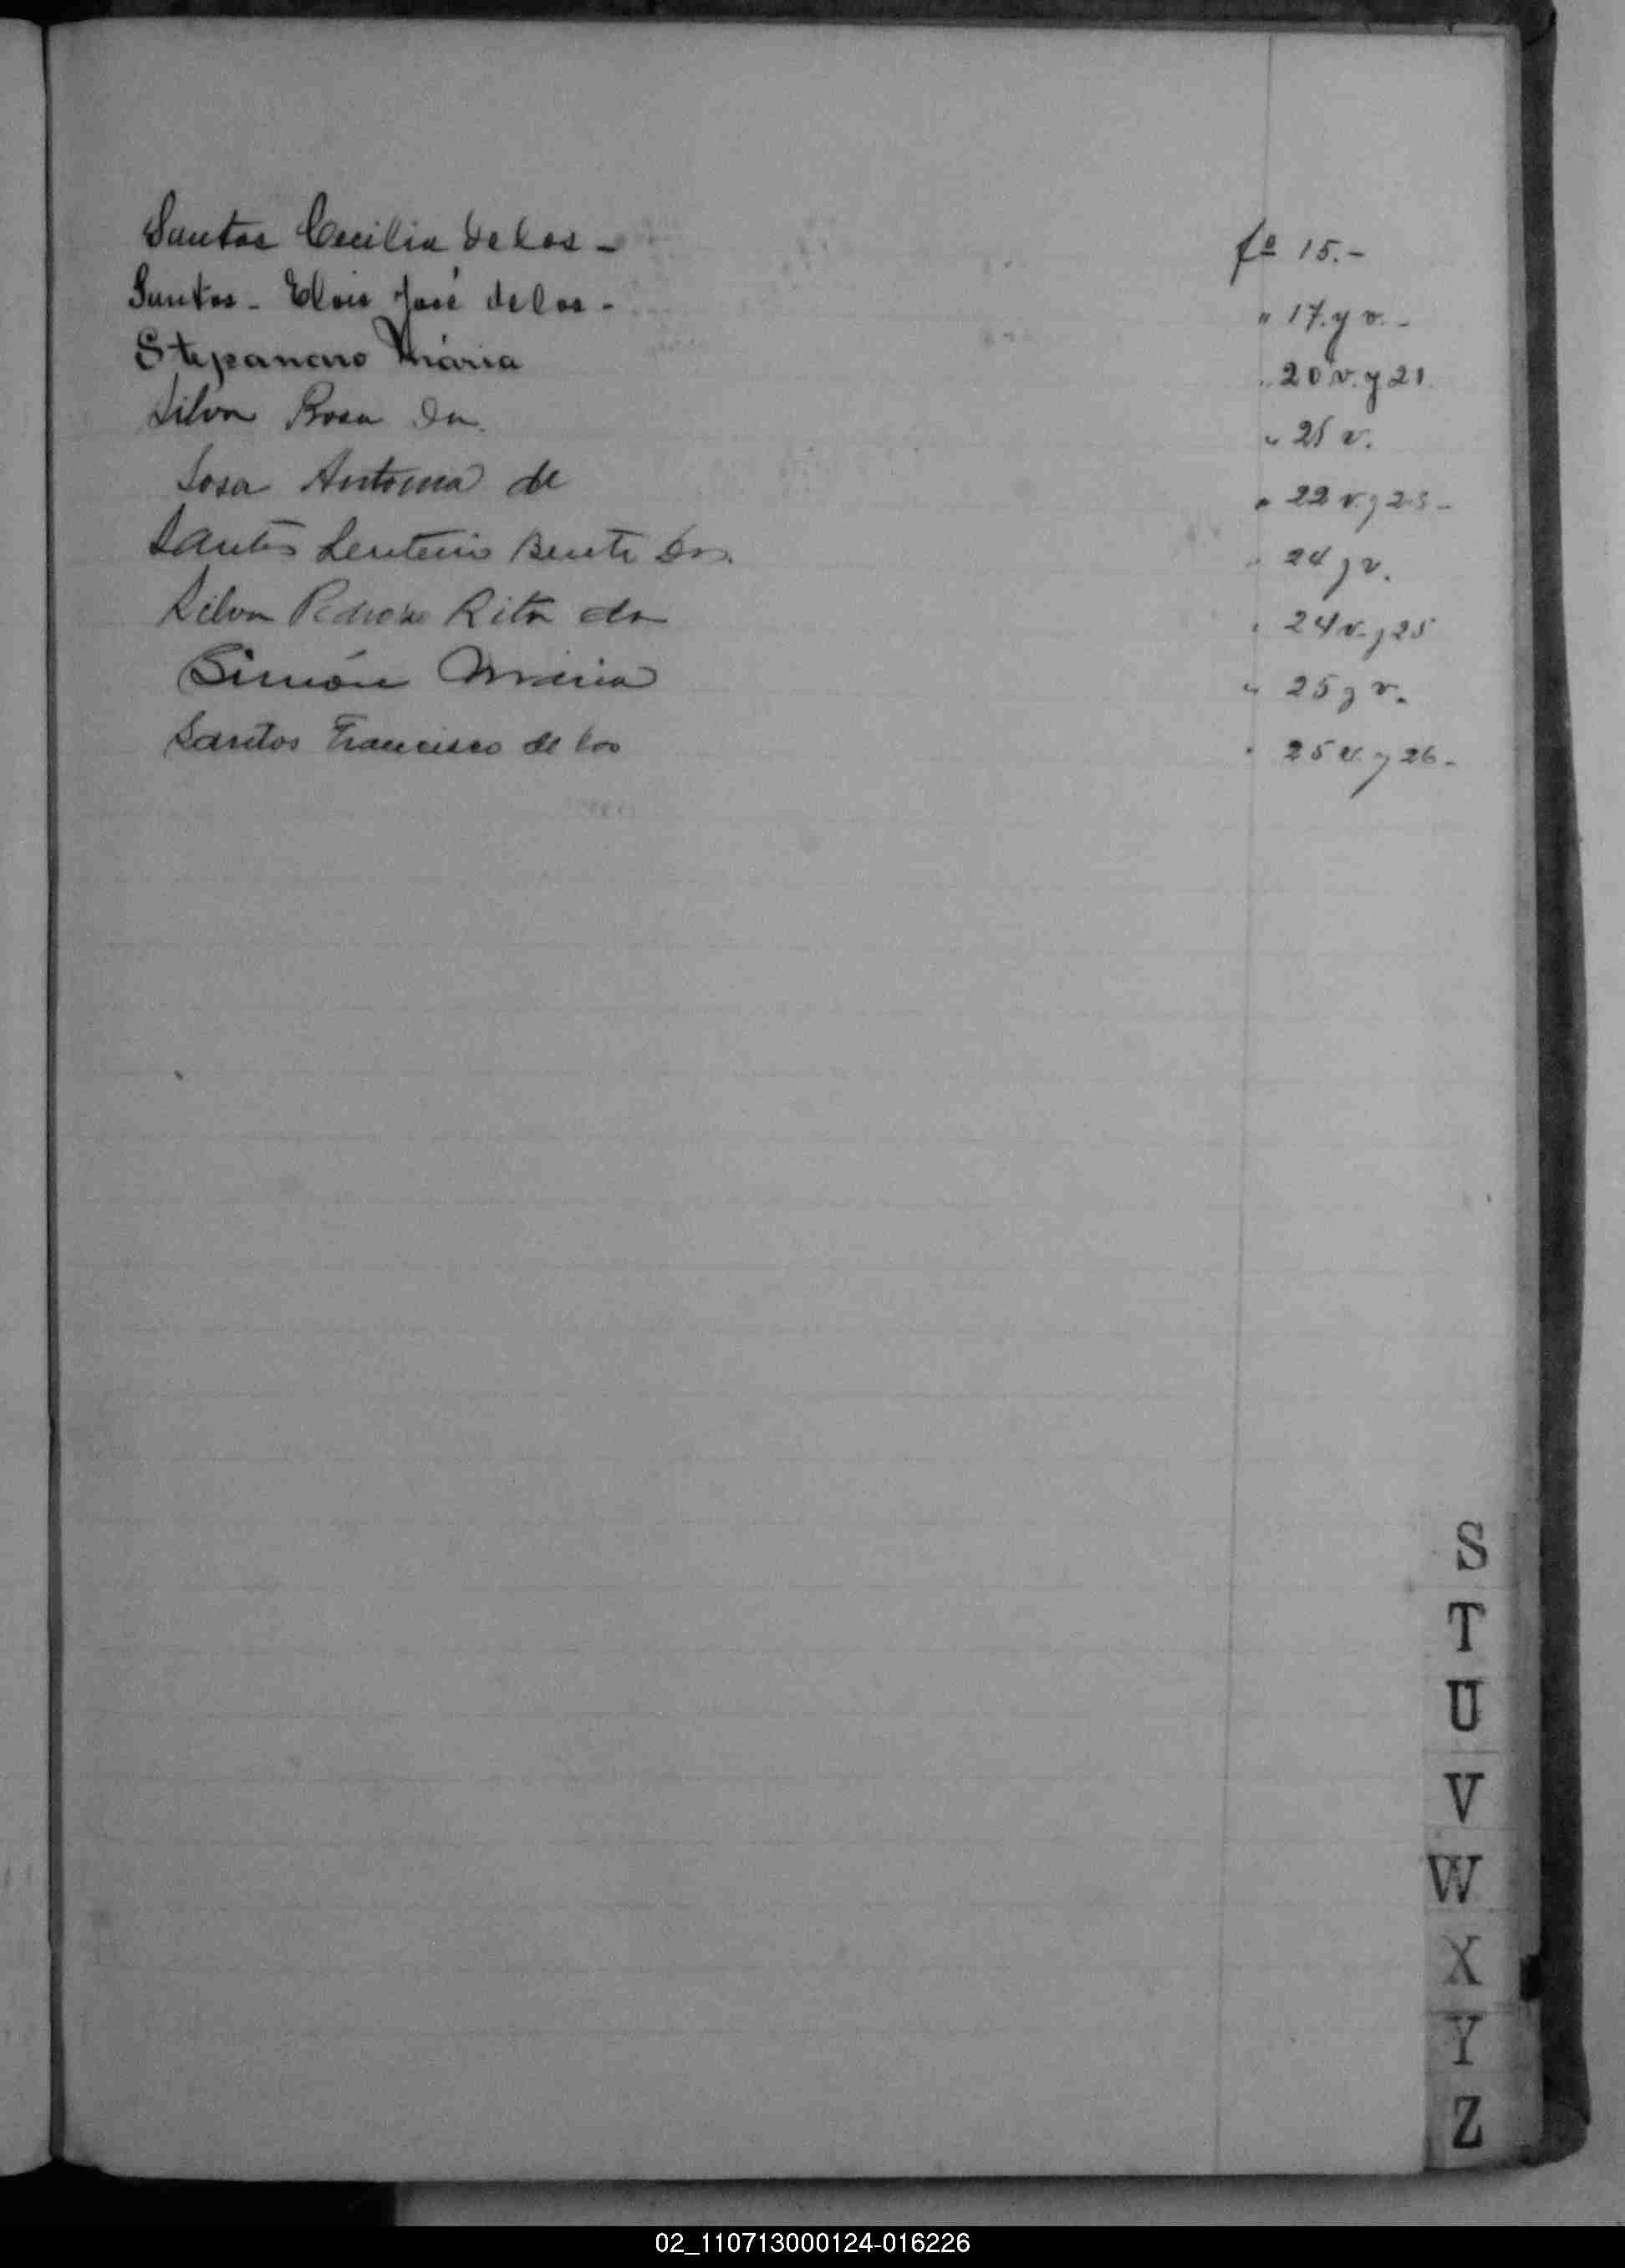 Santos Cecilia de los - fº 15.-
Santos - Elois José de los - " 17. y v. -
Stepanono María " 20 v. y 21
Silva Rosa Da. " 21 v.
Sosa Antonia de " 22 v. y 23 -
Santos Benta Dos. " 24 y v.
Silva Pedroso Rita da " 24 v. y 25
Simón María " 25 y v.
Santos Francisco de los " 25 v. y 26 -
S
T
U
V
W
X
Y
Z
02_110713000124-016226